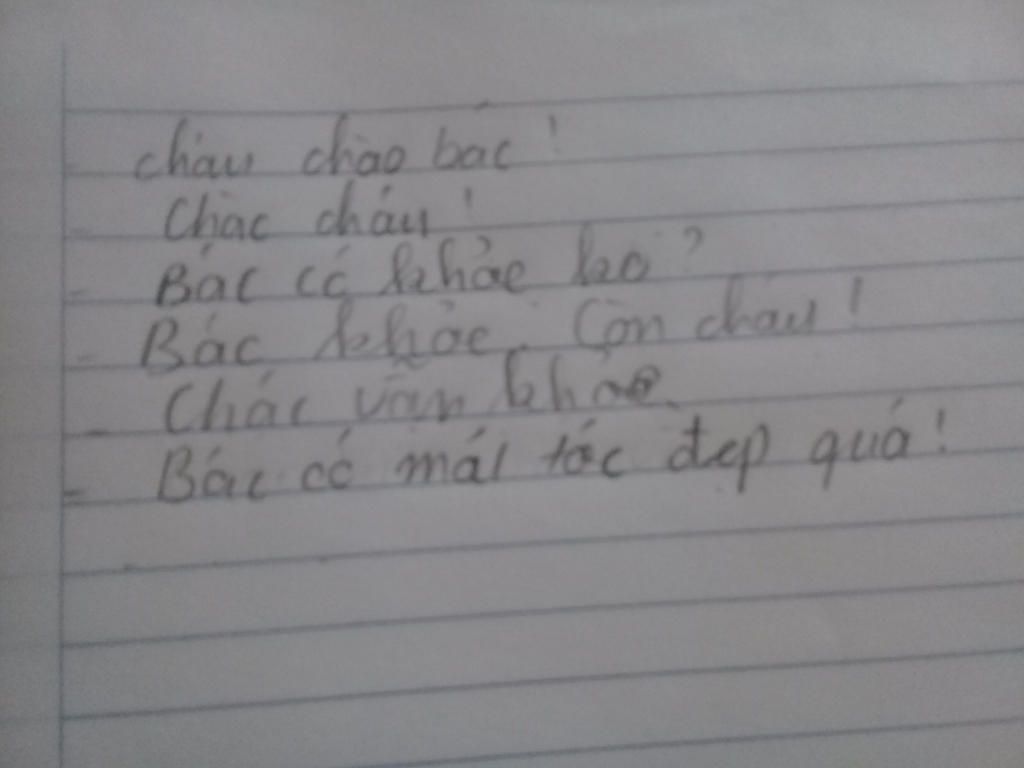 - cháu chào bác!
- Chác cháu!
- Bác có khỏe ko?
- Bác khỏe. Còn cháu!
- Chác vẫn khỏe.
- Bác có mái tóc đẹp quá!